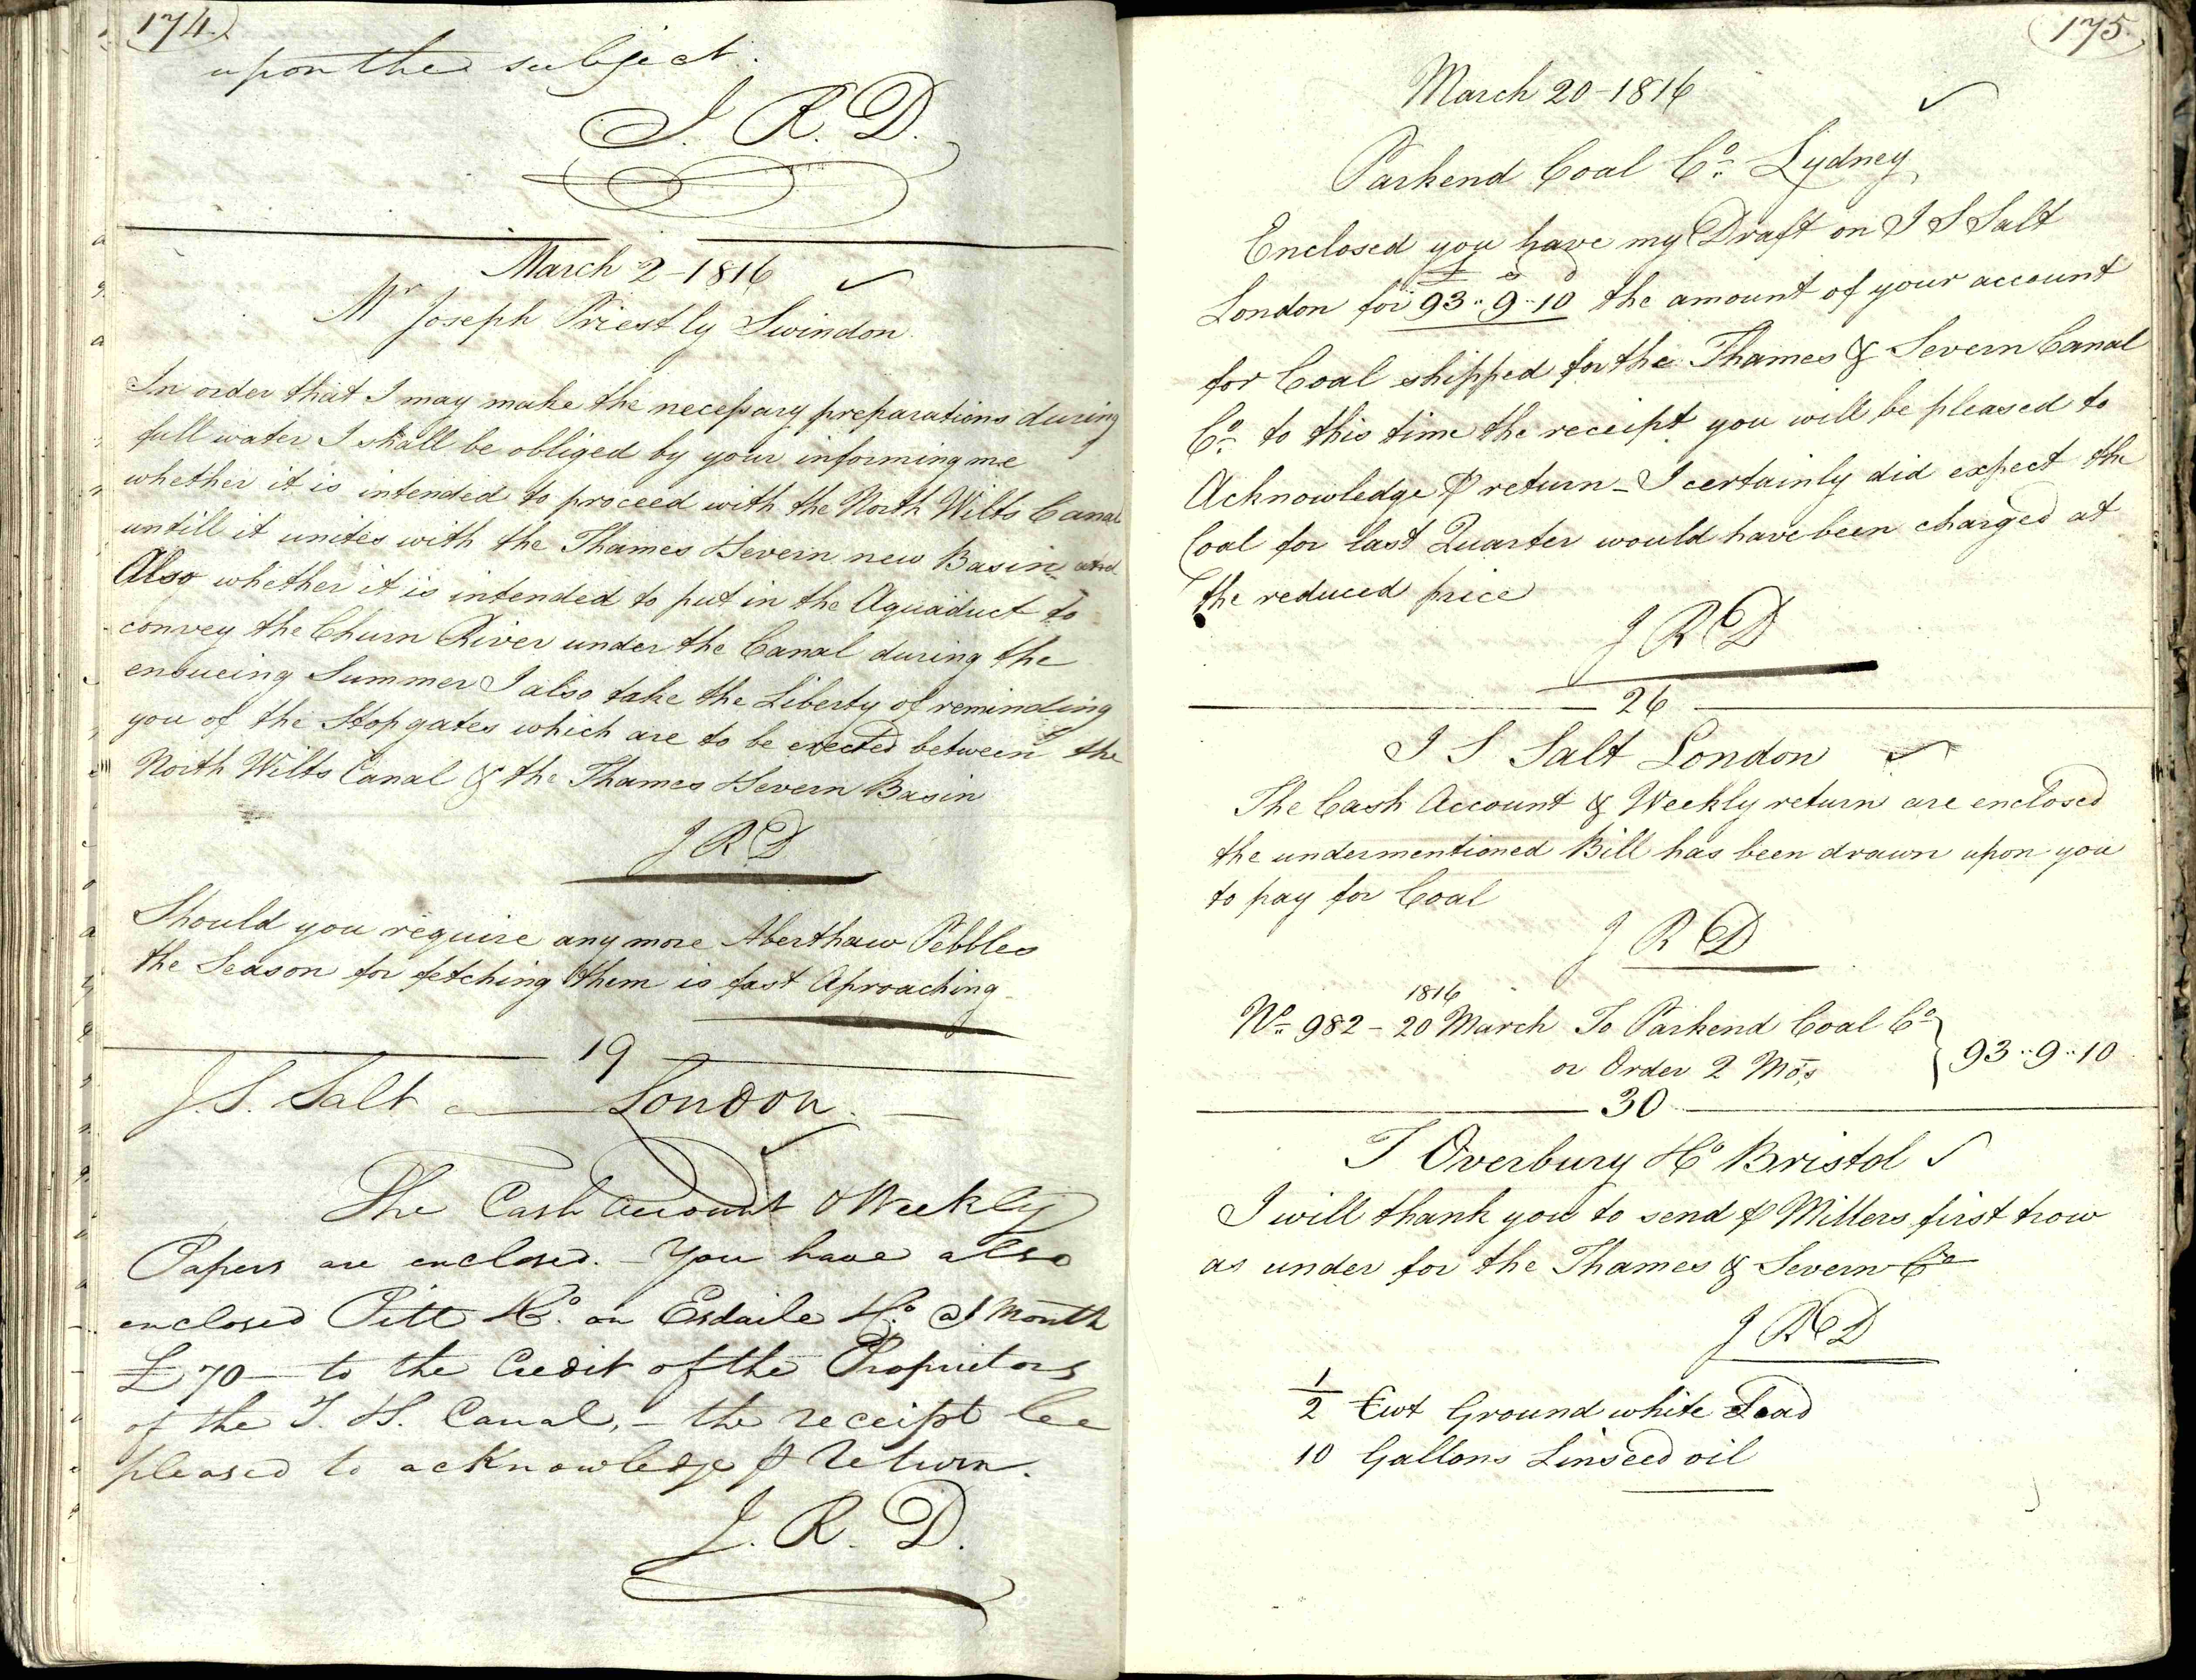 174
upon the subject.
J. R. D.
March 2 - 1816
Mr Joseph Priestly Swindon
In order that I may make the necessary preparations during
full water I shall be obliged by your informing me
whether it is intended to proceed with the North Wilts Canal
untill it unites with the Thames & Severn new Basin and
Also whether it is intended to put in the Aquaduct to
convey the Churn River under the Canal during the
ensueing Summer I also take the Liberty of reminding
you of the Stop gates which are to be erected between the
North Wilts Canal & the Thames & Severn Basin
J R D
Should you require any more Aberthaw Pebbles
the Season for fetching them is fast Aproaching
19
J. S. Salt London.
The Cash Account & Weekly
Papers are enclosed. - You have also
enclosed Pitt & Co. on Esdaile & Co. @ 1 Month
£70 - to the Credit of the Proprietors
of the T. & S. Canal, - the receipt be
pleased to acknowledge p return.
J. R. D.
175
March 20 - 1816
Parkend Coal Co. Lydney
Enclosed you have my Draft on J S Salt
£ s d
London for 93..9..10 the amount of your account
for Coal shipped for the Thames & Severn Canal
Co. to this time the receipt you will be pleased to
Acknowledge p return - I certainly did expect the
Coal for last Quarter would have been charged at
the reduced price
J R D
26
J S Salt London
The Cash Account & Weekly return are enclosed
the undermentioned Bill has been drawn upon you
to pay for Coal
J R D
1816
No. 982 - 20 March To Parkend Coal Co.
or Order 2 Mos } 93..9..10
30
T Overbury & Co Bristol
I will thank you to send p Millers first trow
as under for the Thames & Severn Co
J R D
1/2 Cwt Ground white Lead
10 Gallons Linseed oil